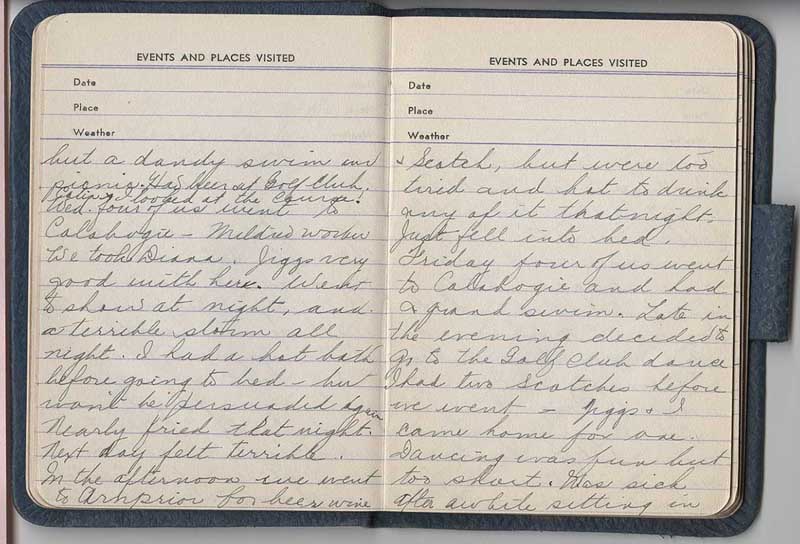 EVENTS AND PLACES VISITED
Date
Place
Weather
but a dandy swim and
picnic. Had beer at Golf Club.
looked at the course.
Wed. four of us went to
Calabogie – Mildred worker
We took Diana. Jiggs very
good with her. Went
to show at night, and
a terrible storm all
night. I had a hot bath
before going to bed – but
won't be persuaded again
Nearly fried that night.
Next day felt terrible.
In the afternoon we went
to Arnprior for beer wine
EVENTS AND PLACES VISITED
Date
Place
Weather
& Scotch, but were too
tired and hot to drink
any of it that night.
Just fell into bed.
Friday four of us went
to Calabogie and had
a grand swim. Late in
the evening decided to
go to the Golf Club dance
I had two Scotches before
we went – Jiggs & I
came home for one.
Dancing was fun but
too short. Was sick
after awhile sitting in